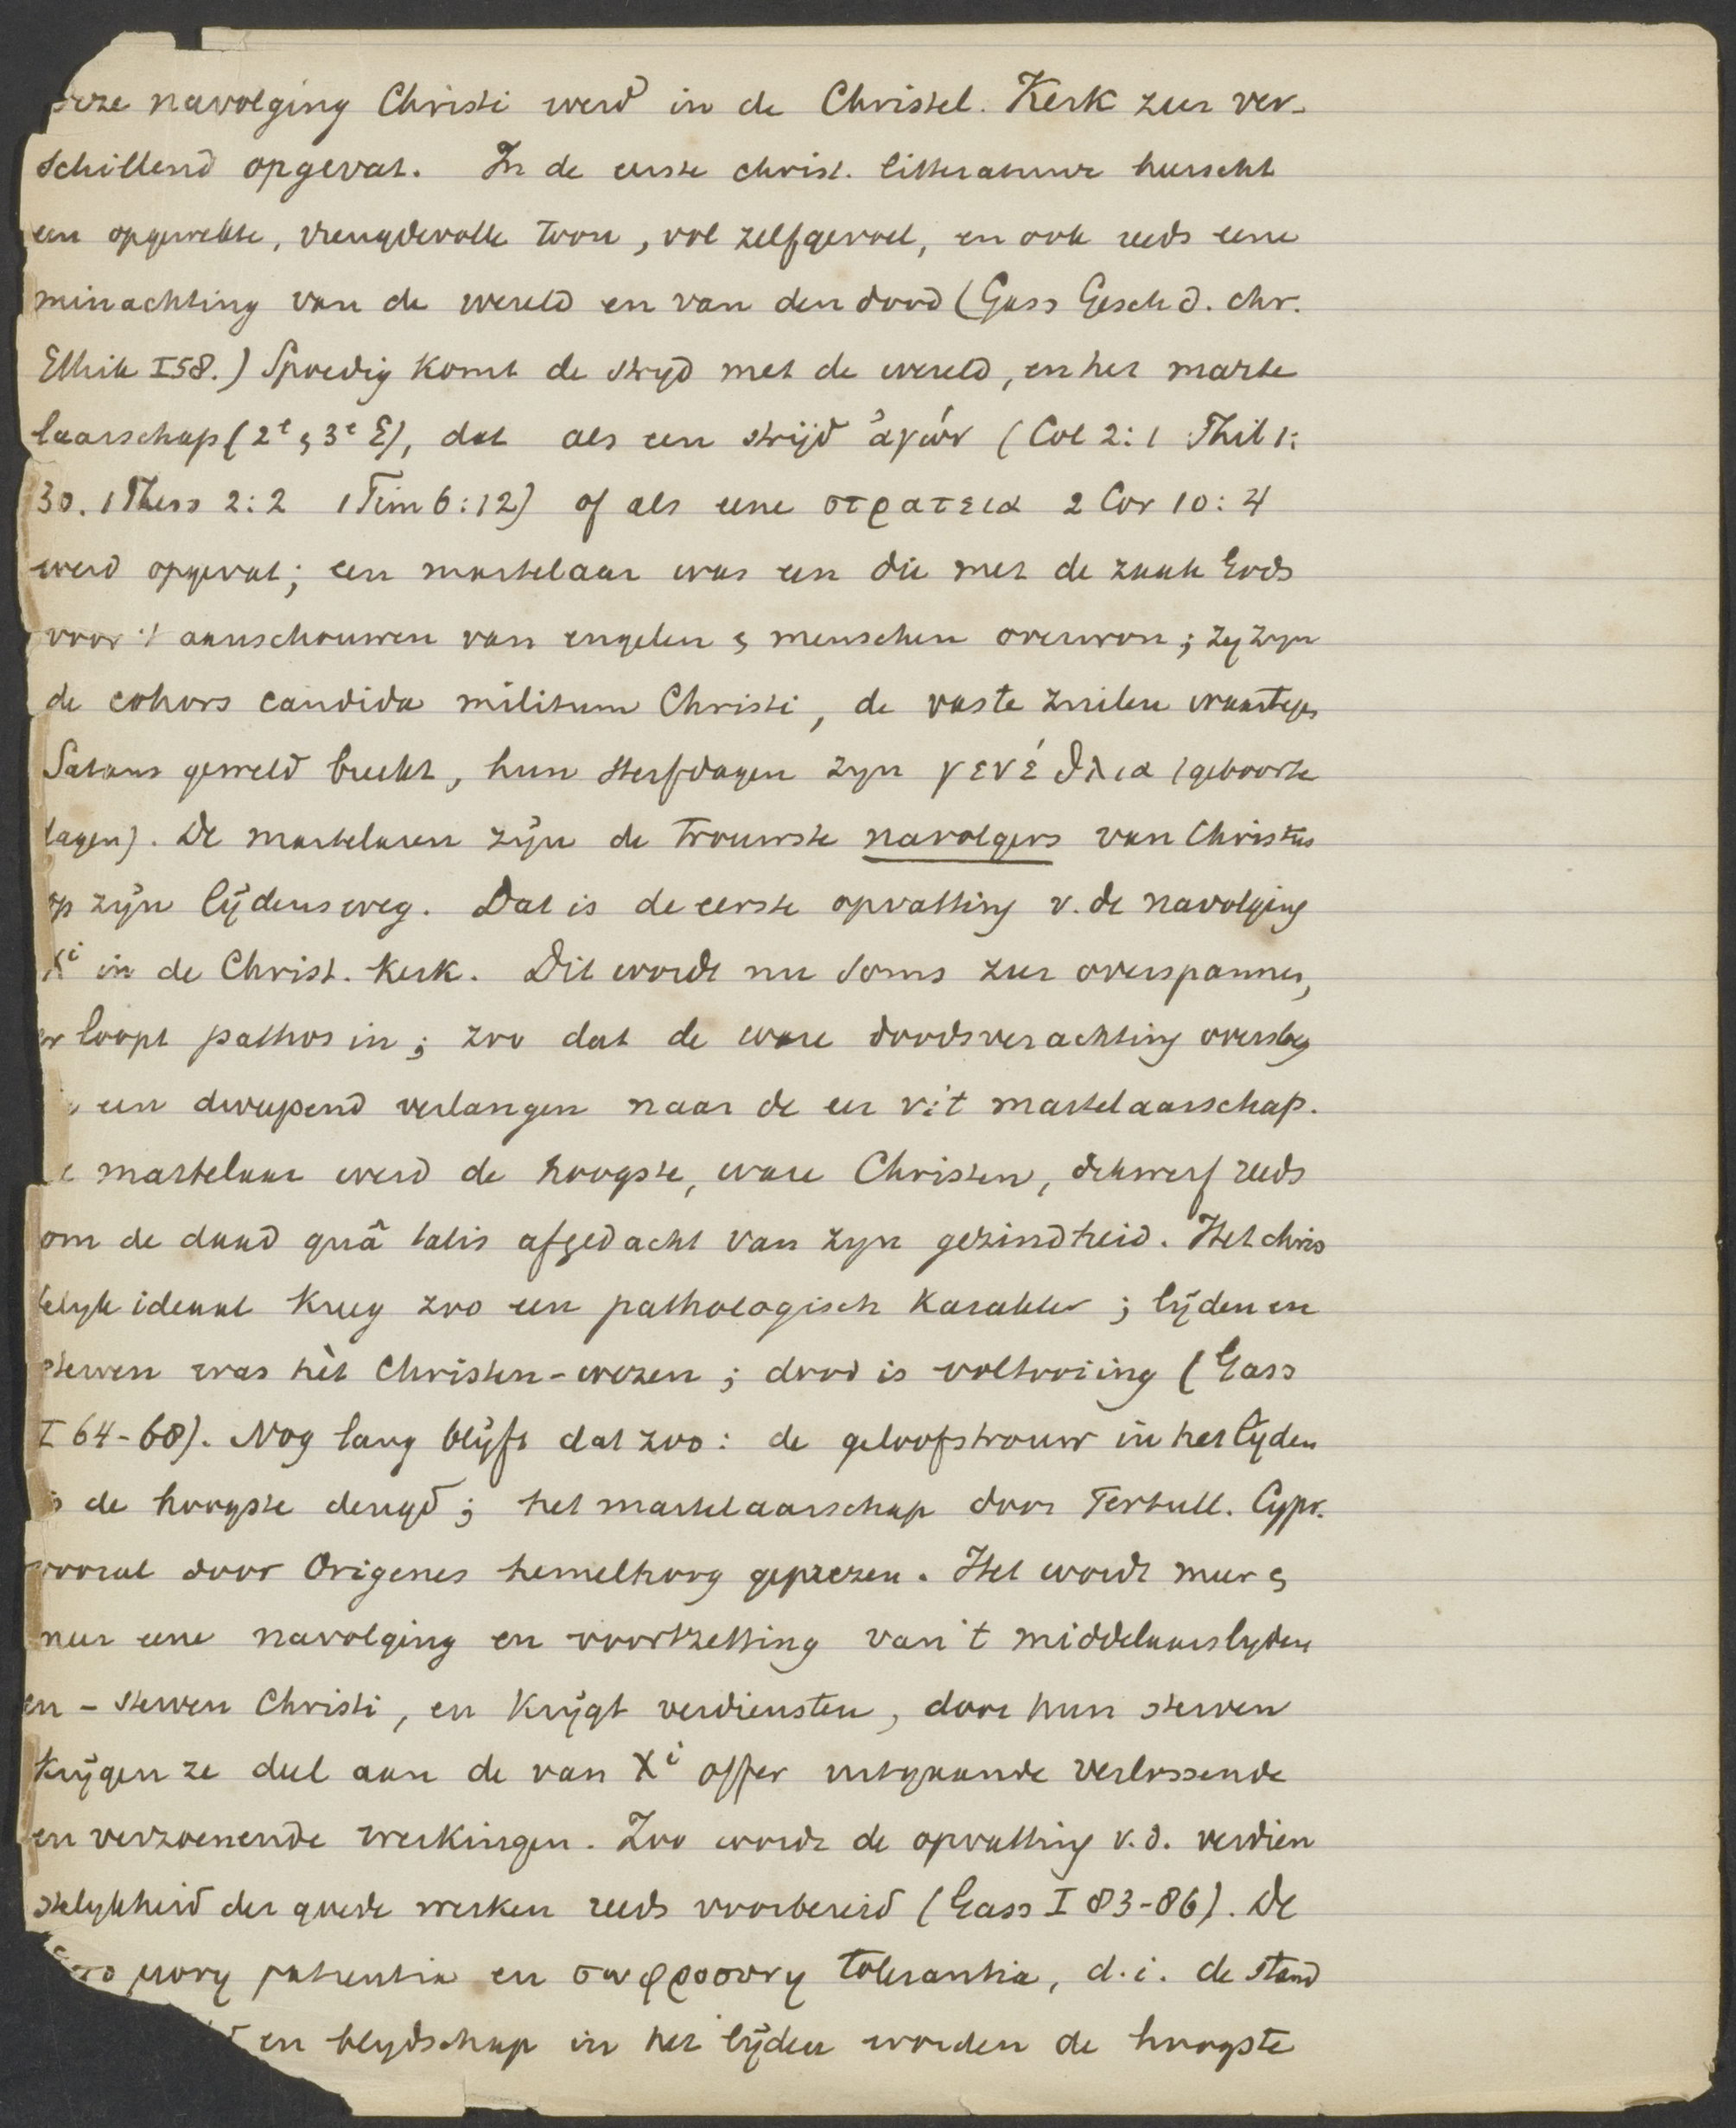 deze navolging Christi werd in de Christel. Kerk zeer ver-
schillend opgevat. In de eerste christ. litteratuur heerscht
een opgewekte, vreugdevolle toon, vol zelfgevoel, en ook reeds eene
minachting van de wereld en van den dood (Gass Gesch d. chr.
Ethik I 58.) Spoedig komt de stryd met de wereld, en het marte
laarschap (2e & 3e E), dat als een strijd ἀγών (Col 2:1 Phil 1:
30. 1 Thess 2:2 1 Tim 6:12) of als eene στρατεια 2 Cor 10:4
werd opgevat; een martelaar was een die met de zaak Gods
voor 't aanschouwen van engelen & menschen overwon; zy zyn
de cohors candida militum Christi, de vaste zuilen waartegen
Satans geweld breekt, hun sterfdagen zyn γενέθλια (geboorte
dagen). De martelaren zijn de trouwste navolgers van Christus
op zijn lijdensweg. Dat is de eerste opvatting v. de navolging
Xi in de Christ. Kerk. Dit wordt nu soms zeer overspannen,
er loopt pathos in; zoo dat de ware doodsverachting oversloeg
een dweepend verlangen naar de eer v 't martelaarschap.
martelaar werd de hoogste, ware Christen, dikwerf reeds
om de daad quâ talis afgedacht van zyn gezindheid. Het chris
telyk ideaal kreeg zoo een pathologisch karakter; lijden en
sterven was hèt Christen-wezen; dood is voltooiing (Gass
I 64-68). Nog lang blijft dat zoo: de geloofstrouw in het lijden
is de hoogste deugd; het martelaarschap door Tertull. Cypr.
vooral door Origenes hemelhoog geprezen. Het wordt meer &
meer eene navolging en voortzetting van 't middelaarslyden
en - sterven Christi, en krijgt verdiensten, door hun sterven
krijgen ze deel aan de van Xi offer uitgaande verlossende
en verzoenende werkingen. Zoo wordt de opvatting v.d. verdien
stelykheid der goede werken reeds voorbereid (Gass I 83-86). De
μονη patientia en σωφροσυνη tolerantia, d.i. de stand
en blydschap in het lijden worden de hoogste